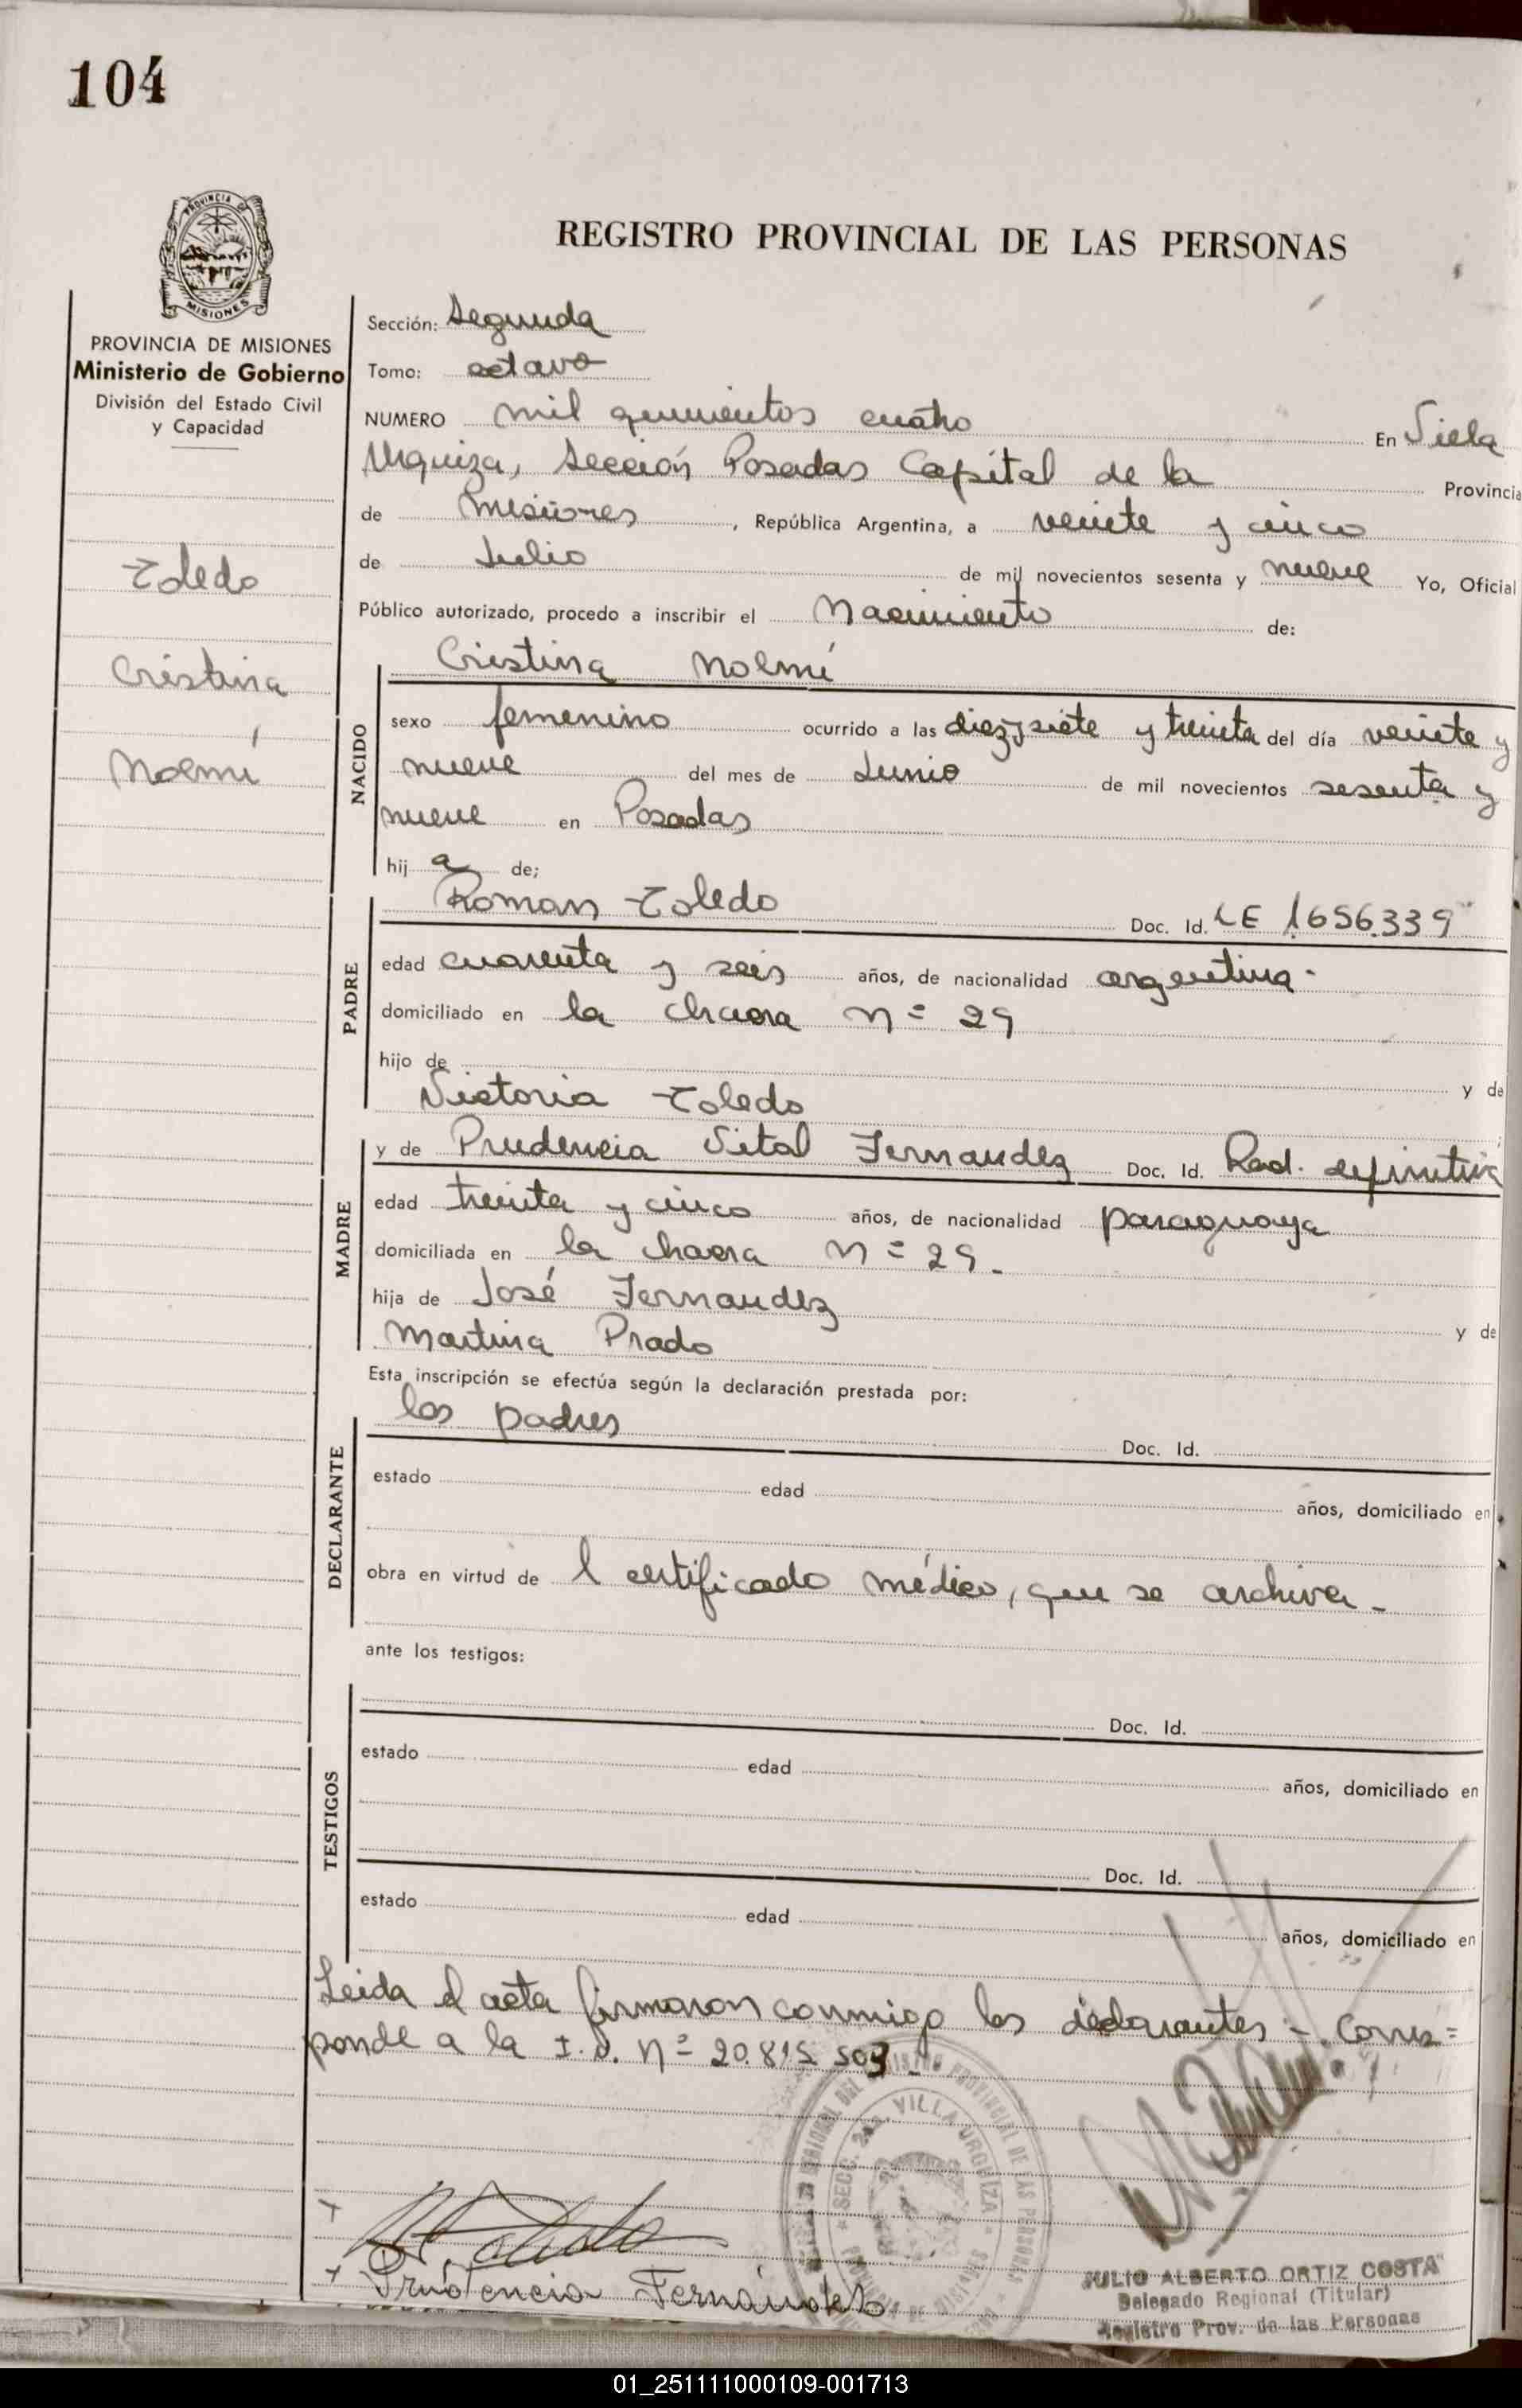 104
PROVINCIA DE
MISIONES
REGISTRO PROVINCIAL DE LAS PERSONAS
PROVINCIA DE MISIONES
Ministerio de Gobierno
División del Estado Civil
y Capacidad
Toledo
Cristina
Noemí
Sección: Segunda
Tomo: octavo
NUMERO mil quinientos cuatro En Villa
Urquiza, Sección Posadas Capital de la Provincia
de Misiones, República Argentina, a veinte y cinco
de Julio de mil novecientos sesenta y nueve Yo, Oficial
Público autorizado, procedo a inscribir el Nacimiento de:
Cristina Noemí
NACIDO
sexo femenino ocurrido a las diez y siete y treinta del día veinte y
nueve del mes de Junio de mil novecientos sesenta y
nueve en Posadas
hij a de;
PADRE
Roman Toledo Doc. Id. LE 1656.339
edad cuarenta y seis años, de nacionalidad argentina.
domiciliado en la chacra n= 29
hijo de y de
Victoria Toledo
MADRE
y de Prudencia Vital Fernandez Doc. Id. Rad. definitiva
edad treinta y cinco años, de nacionalidad paraguaya
domiciliada en la chacra n= 29.
hija de José Fernandez y de
Martina Prado
Esta inscripción se efectúa según la declaración prestada por:
DECLARANTE
los padres Doc. Id.
estado edad años, domiciliado en
obra en virtud de l certificado médico, que se archiva.
ante los testigos:
TESTIGOS
Doc. Id.
estado edad años, domiciliado en
Doc. Id.
estado edad años, domiciliado en
Leida el acta firmaron conmigo los declarantes -. Corres=
ponde a la I.D. n= 20.815 503.
SECC. 2da. VILLA URQUIZA
Prudencia Fernández
JULIO ALBERTO ORTIZ COSTA
Delegado Regional (Titular)
Registro Prov. de las Personas
01_251111000109-001713